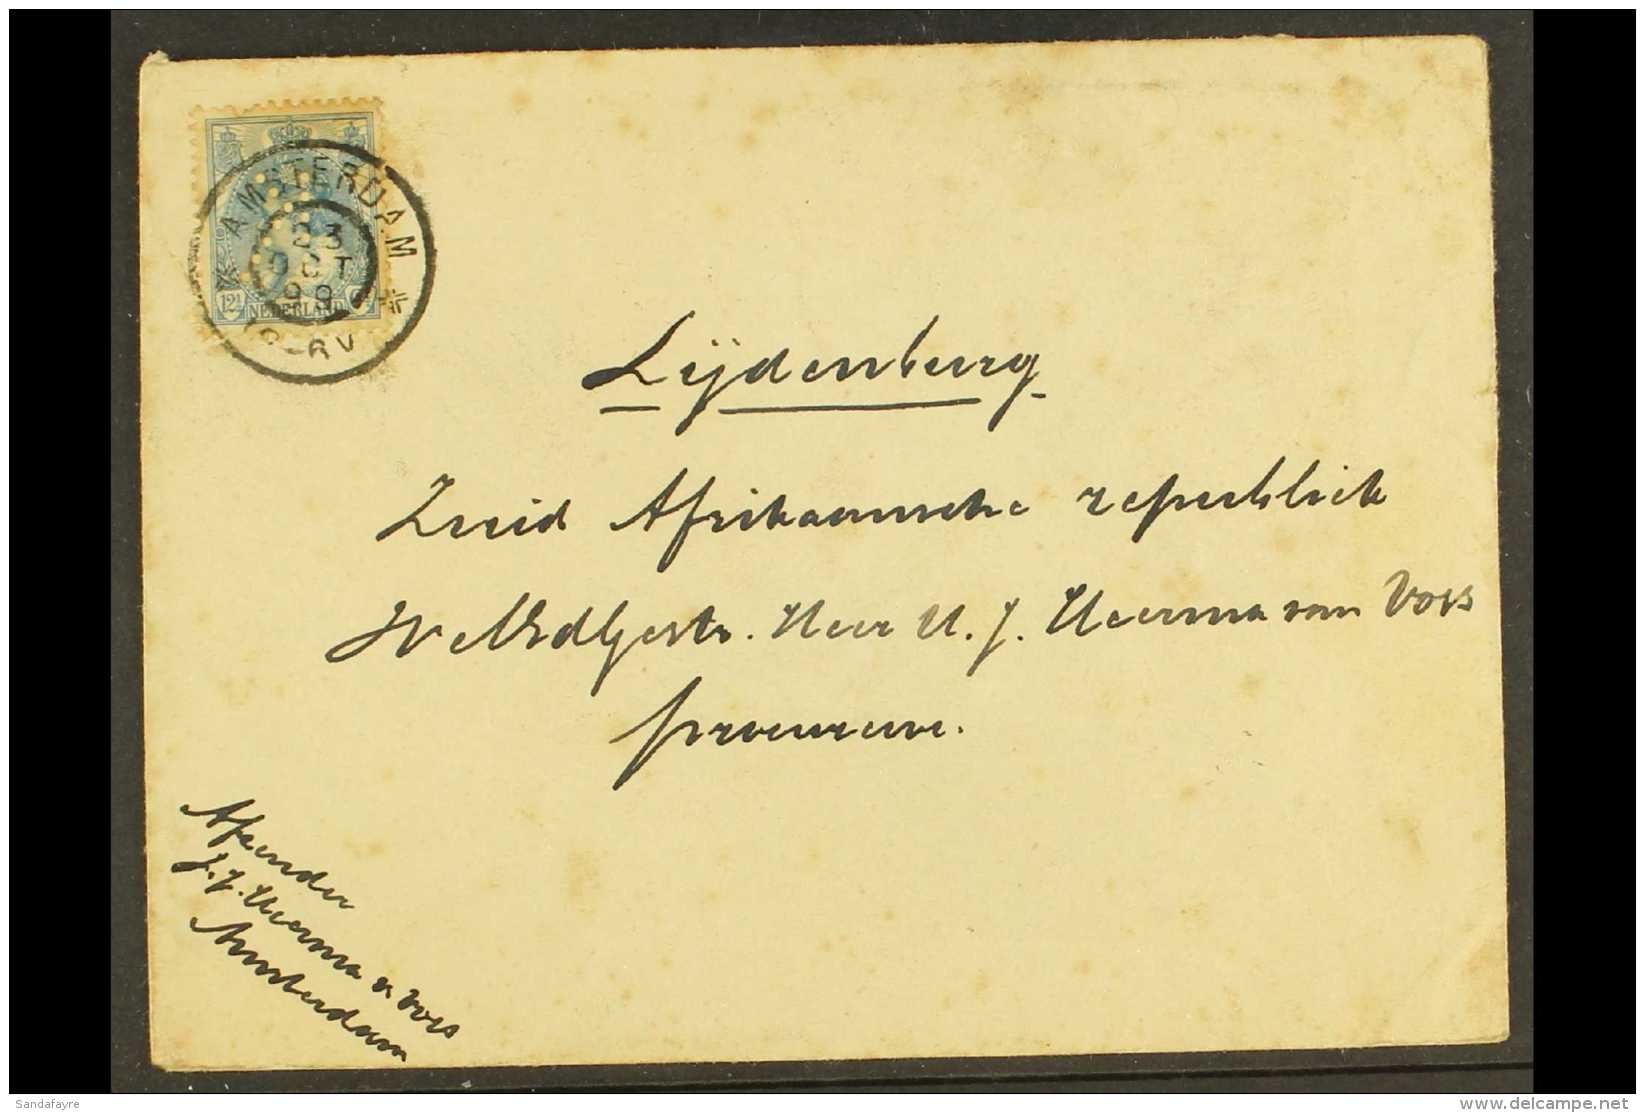 AMSTERDAM
23
OCT
99
12½
NEDERLAND
Lijdenburg
Zuid Afrikaansche republiek
WelEdlGestr. Heer U. J. Heerma van Voss
procureur.
Afzender
J. J. Heerma v. Voss
Amsterdam
Sandafayre
www.delcampe.net